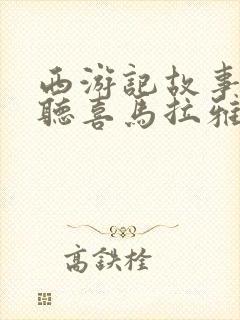 西游記故事
聽喜馬拉雅
高鉄栓